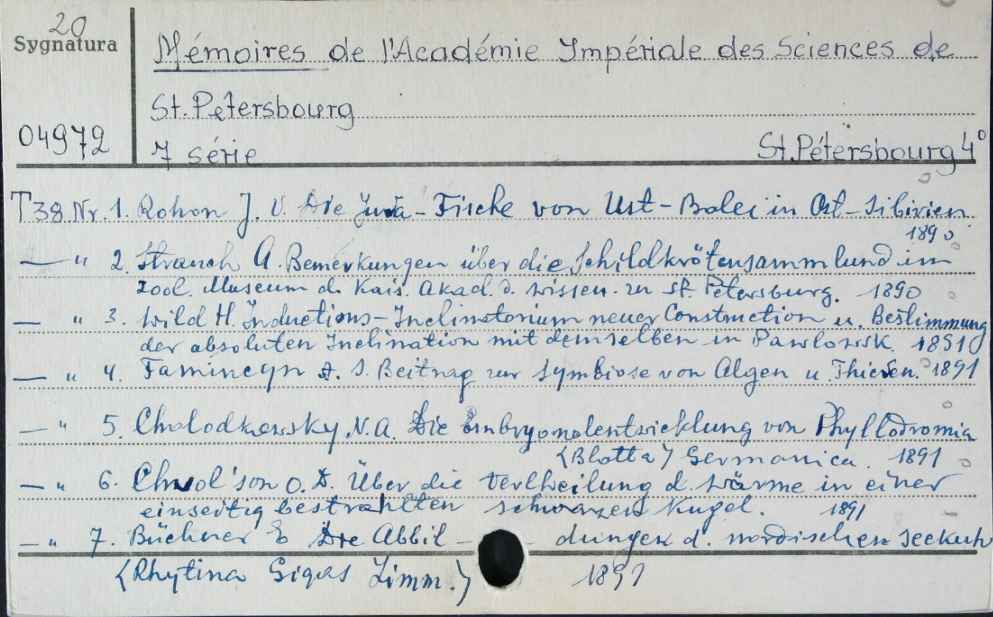 20
Sygnatura
04972
Mémoires de l'Académie Impériale des Sciences de
St. Petersbourg
7 série St. Pétersbourg 4°
T 38 Nr. 1. Rohon J. V. Die Jura-Fische von Ust-Balei in Ost-Sibirien.
1890
— " 2. Strauch A. Bemerkungen über die Schildkrötensammlund im
zool. Museum d. Kais. Akad. d. Wissen. zu St. Petersburg. 1890
— " 3. Wild H. Inductions-Inclinatorium neuer Construction u. Bestimmung
der absoluten Inclination mit demselben in Pawlowsk. 1891
— " 4. Famincyn A. S. Beitrag zur Symbiose von Algen u. Thieren. 1891
— " 5. Cholodkowsky, N. A. Die Embryonalentwicklung von Phyllodromia
(Blatta) Germanica. 1891
— " 6. Chwol'son O. D. Über die Vertheilung d. Wärme in einer
einseitig bestrahlten schwarzen Kugel. 1891
— " 7. Büchner E Die Abbil - dungen d. nordischen Seekuh
(Rhytina Gigas Zimm.) 1891